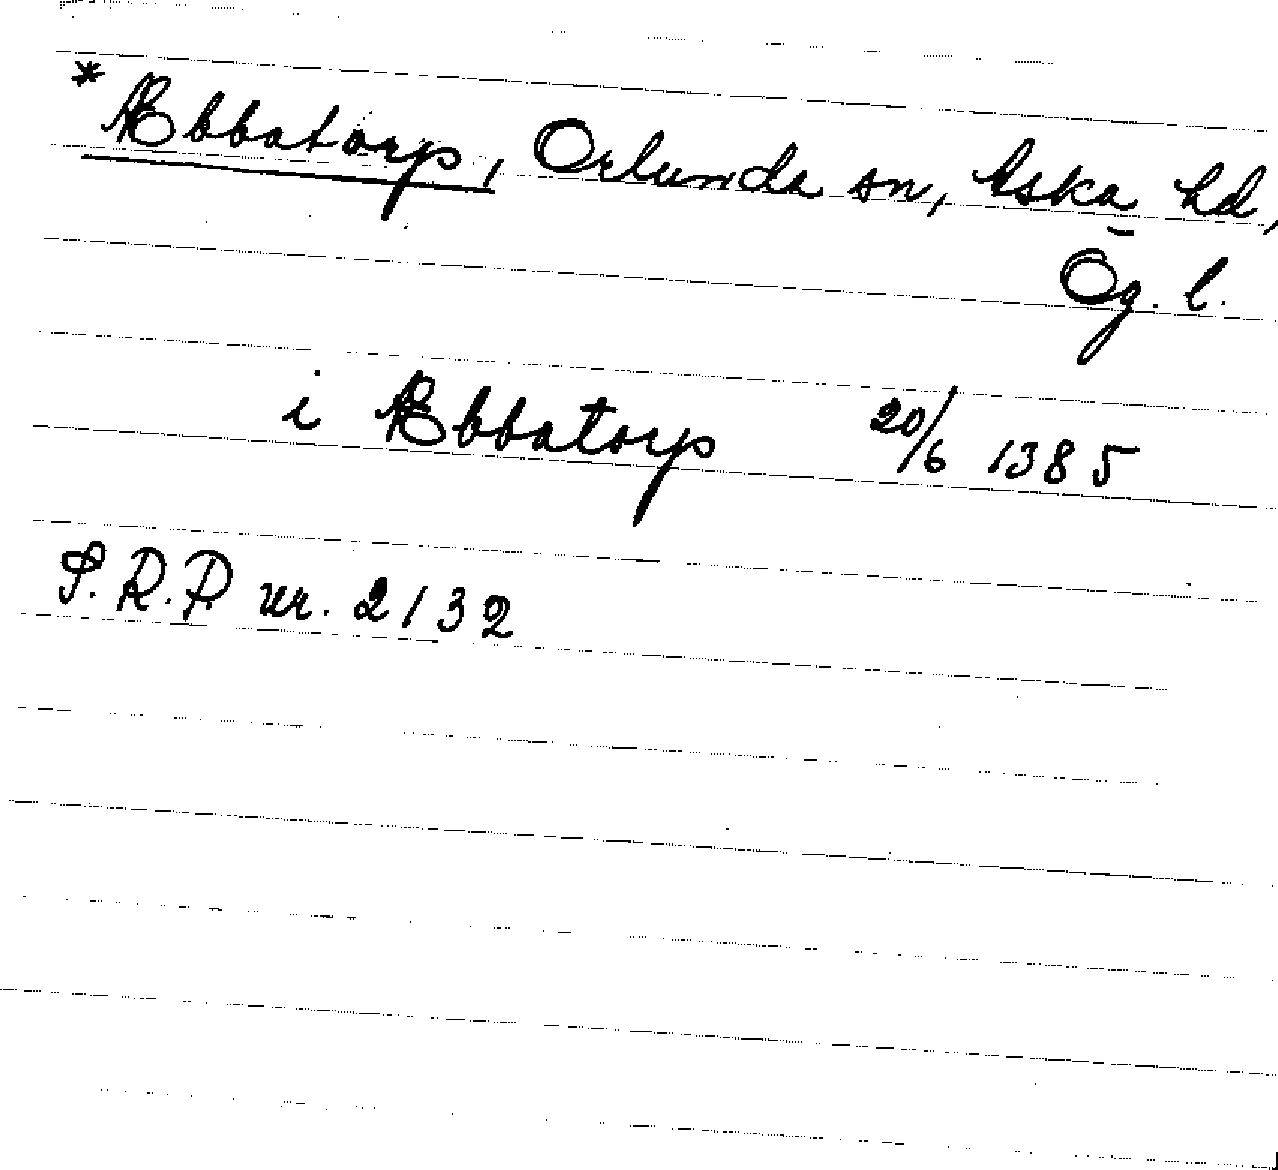 *Æbbatorp, Orlunda sn, Aska hd,
Ög. l.
i Æbbatorp 20/6 1385
S.R.P nr. 2132